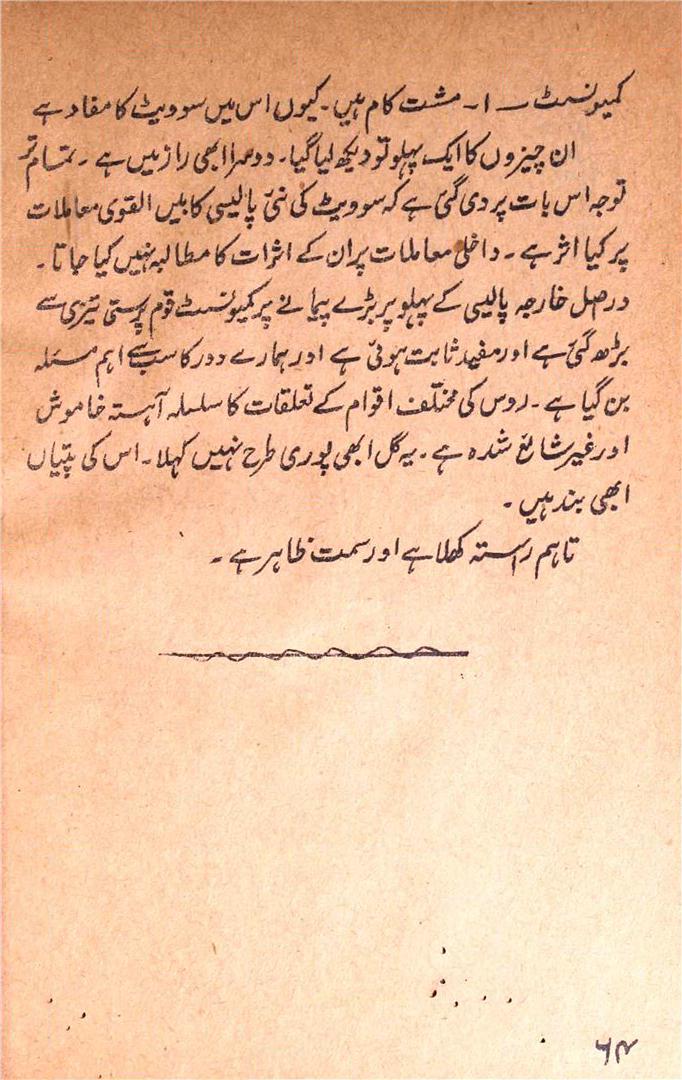 کمیونسٹ ۔ ا۔ مشت کام ہیں۔ کیوں اس میں سوویٹ کا مفاد ہے
ان چیزوں کا ایک پہلو تو دیکھ لیا گیا۔ دوسرا ابھی راز میں ہے۔ تمام تر
توجہ اس بات پر دی گئی ہے کہ سوویٹ کی نئی پالیسی کا بین القوی معاملات
پر کیا اثر ہے۔ داخلی معاملات پر ان کے اثرات کا مطالبہ نہیں کیا جاتا۔
درصل خارجہ پالیسی کے پہلو پر بڑے پیمانے پر کمیونسٹ قوم پرستی تیزی سے
بڑھ گئی ہے اور مفید ثابت ہوئی ہے اور ہمارے دور کا سب سے اہم مسئلہ
بن گیا ہے۔ روس کی مختلف اقوام کے تعلقات کا سلسلہ آہستہ خاموش
اور غیر شائع شدہ ہے۔ یہ گل ابھی پوری طرح نہیں کہلا۔ اس کی پتیاں
ابھی بند ہیں۔
تاہم راستہ کھلا ہے اور سمت ظاہر ہے۔
۶۴